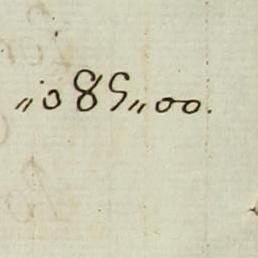 „085„00.